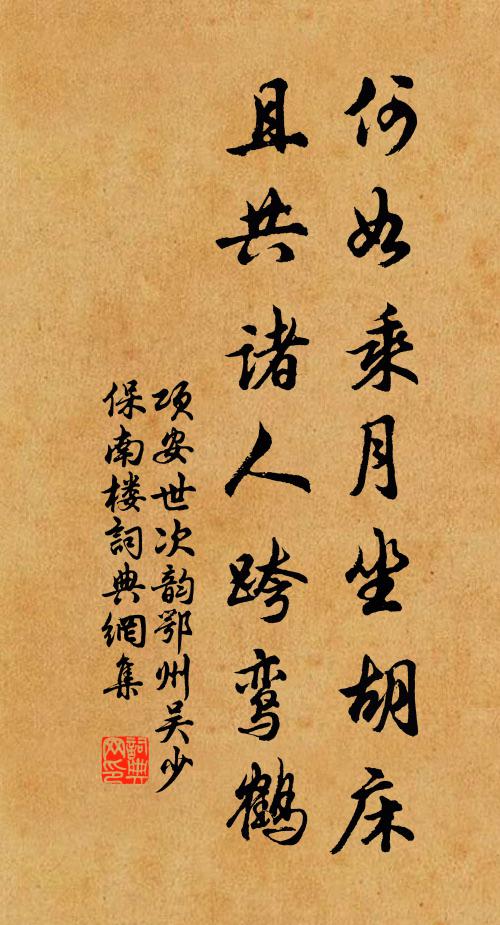 何如乘月坐胡床
且共诸人跨鸾鹤
项安世次韵鄂州吴少
保南楼詞典網集
詞典网印